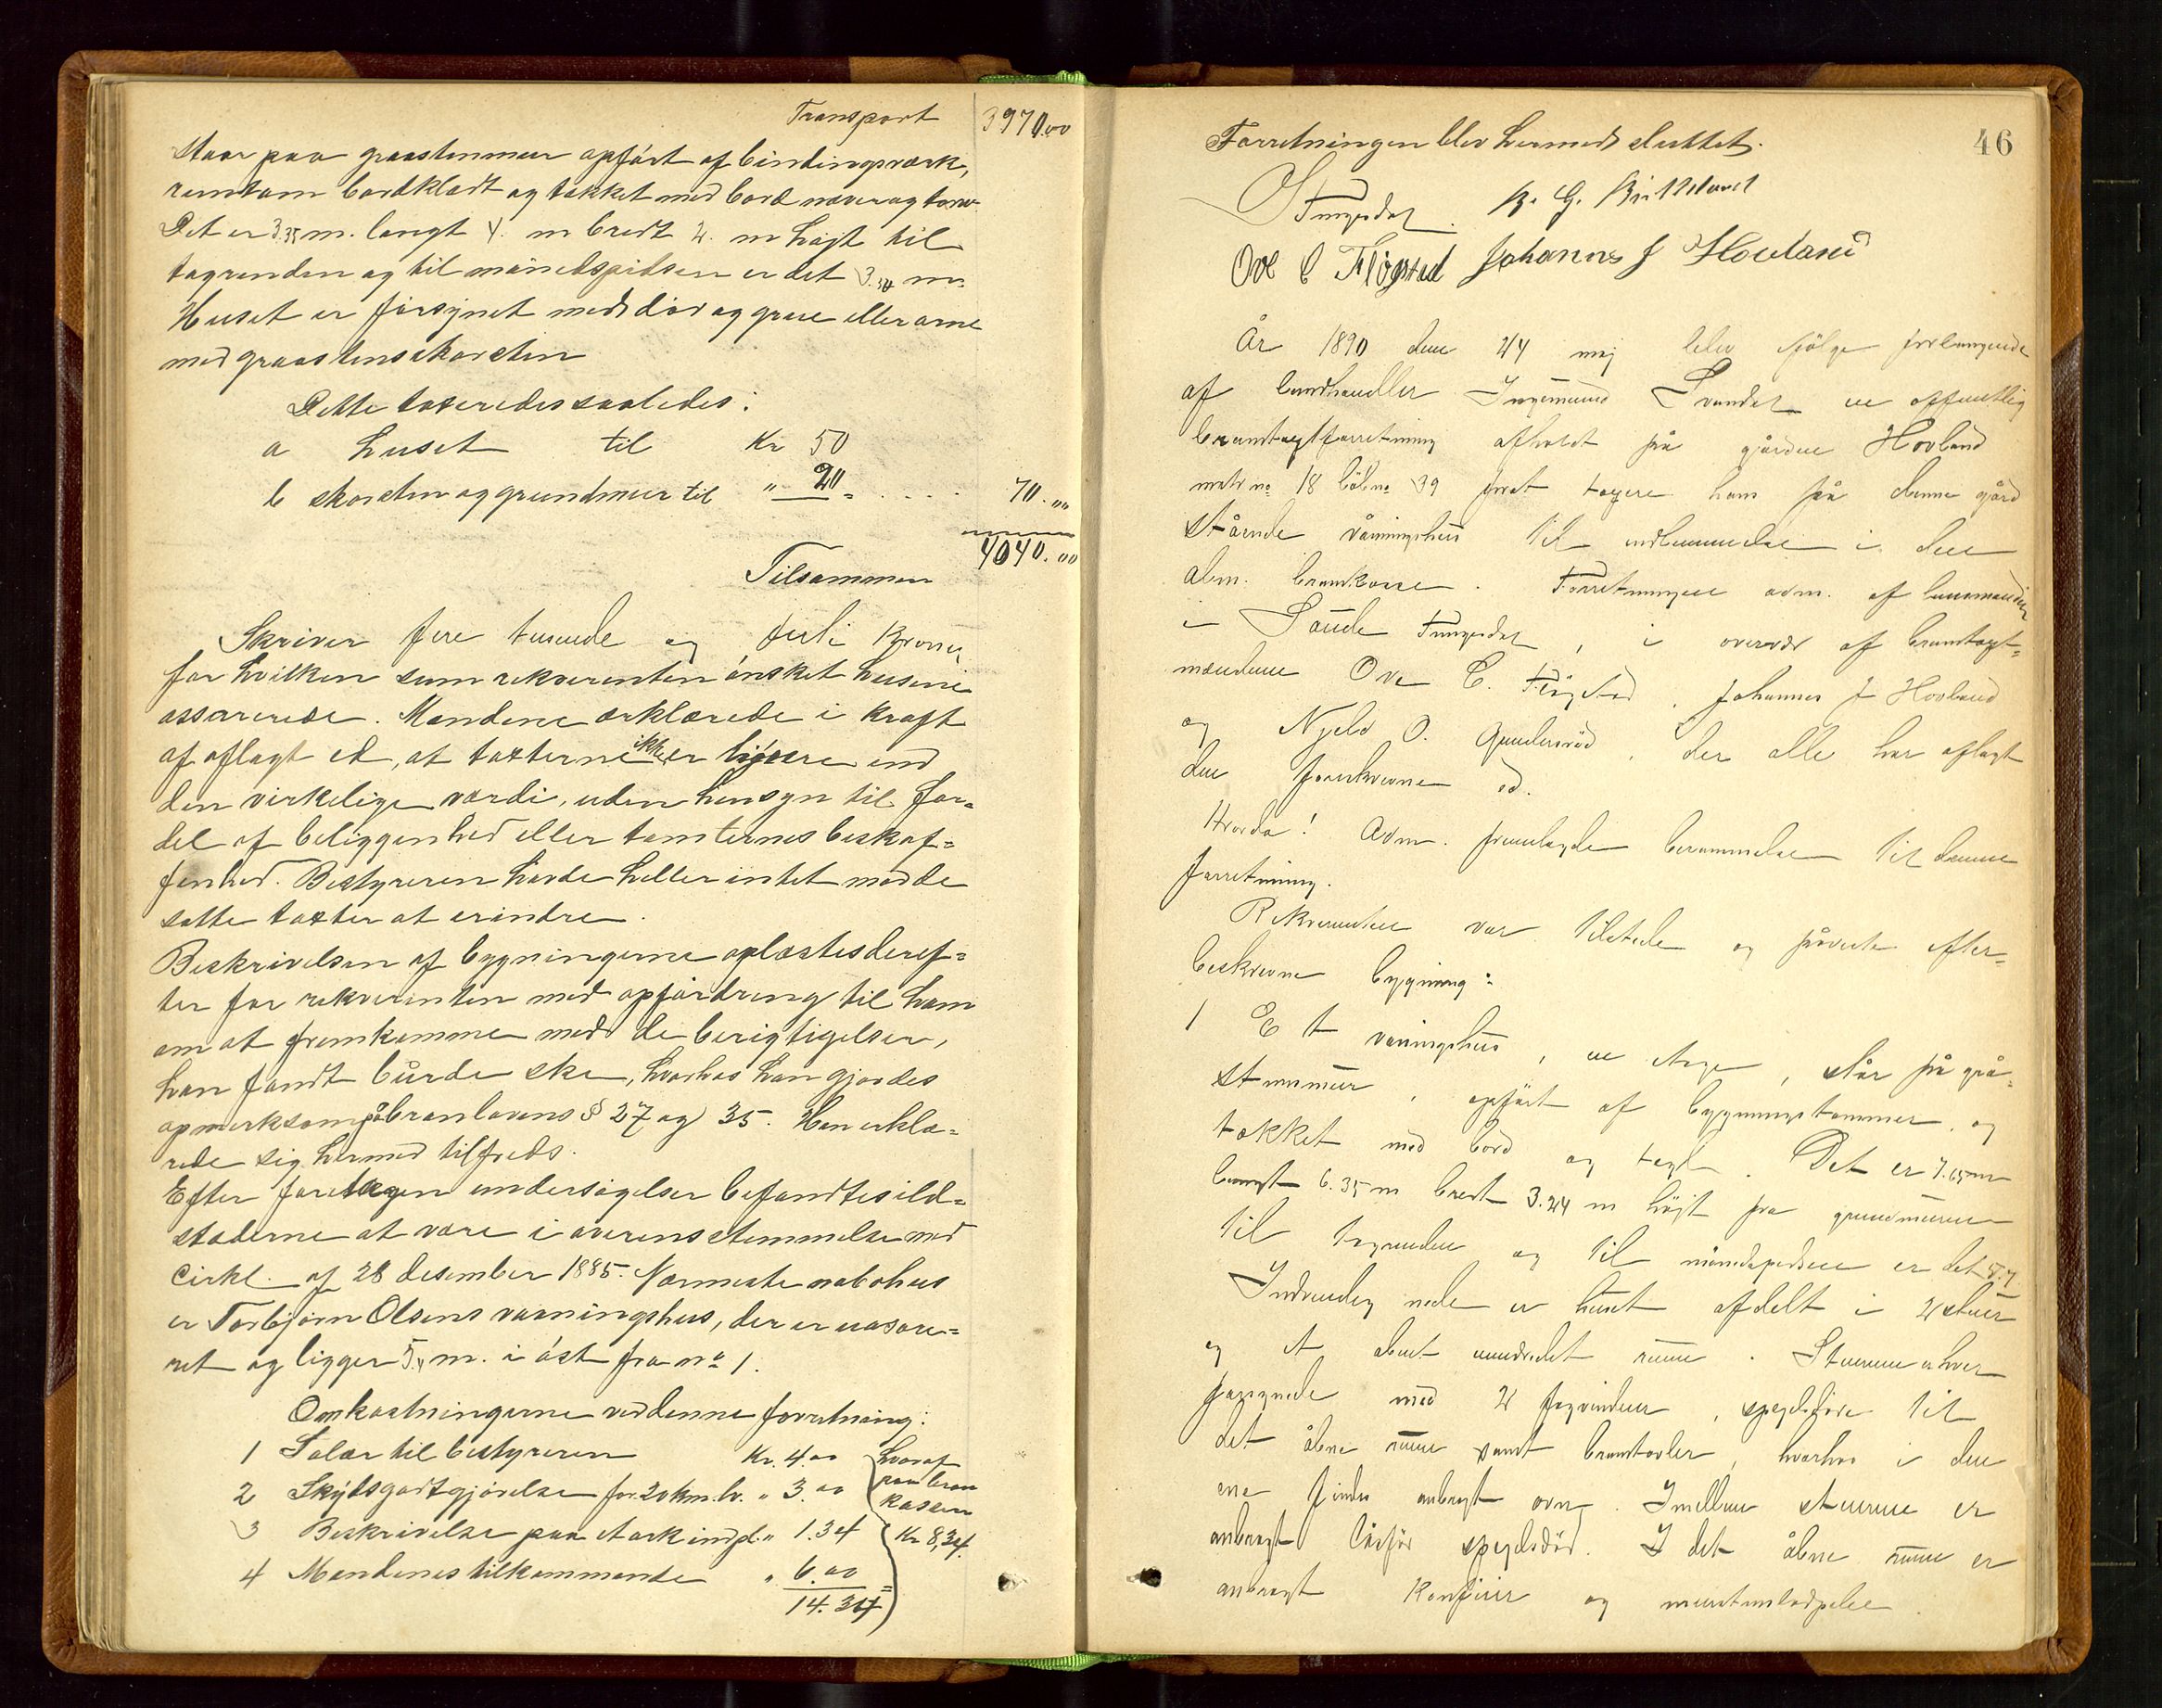 Transport 3970.00
staar paa graastenmur opført af bindingsværk,
rundtom bordklædt og tækket med bord næver og torv
Det er 3.35 m. langt 4. m bredt 2. m højt til
tagrenden og til mønetspidsen er det m.
Huset er forsynet med dør og grue eller arne
med graastensskorsten
Dette taxeredes saaledes:
a huset til Kr 50
b skorsten og grundmur til " 20 = . . . . 70. „„
Tilsammen 4040.00
Skriver fire tusende og førti Kroner,
for hvilken sum rekvirenten ønsket husene
assurerede. Mændene erklærede i kraft
af aflagt ed, at taxterne ikke er højere end
den virkelige værdi, uden hensyn til for=
del af beliggenhed eller tomternes beskaf=
fenhed. Bestyreren havde heller intet mod de
satte taxter at erindre.
Beskrivelsen af bygningerne oplæstes deref=
ter for rekvirenten med opfordring til ham
om at fremkomme med de berigtigelser,
han fandt burde ske, hvorhos han gjordes
opmerksom på branlovens § 27 og 35. Han erklæ=
rede sig hermed tilfreds.
Efter foretagen undersøgelser befandtes ild=
stæderne at være i overensstemmelse med
Cirkl. af 28 desember 1885. Nærmeste nabohus
er Torbjørn Olsens vaaningshus, der er uasure=
ret og ligger m. i øst fra no 1.
Omkostningerne ved denne forretning:
1 Salær til bestyreren Kr. 4.00 hvoraf
2 Skydsgodtgjørelse for 20 km. lv. " 3.00 paa bran
kassen
3 Beskrivelse paa ark indf. " 1.34 Kr 8,34.
4 Mændenes tilkommende " 6.00
14.34
46
Forretningen blev hermed sluttet.
Tungesdal. B. G. Birkeland
Ove C Fløgstad Johannes J Hovland
År 1890 den 24 maj blev ifølge forlangende
af landhandler Ingemund Svandal en offentlig
brandtaxtforretning afholdt på gården Hovland
matr no 18 løbno 39 for at taxere hans på denne gård
stående våningshus til indlemmelse i den
alm. brankasse. Forretningen adm. af lensmanden
i Saude Tungesdal, i overvær af brandtaxt=
mændene Ove C. Fløgstad, Johannes J Hovland
og O. Gundersrød, der alle har aflagt
den foreskrevne ed.
Hvorda! Adm. fremlagde berammelse til denne
forretning.
Rekvirenten var tilstede og påviste efter=
beskrevne bygning:
1 Et våningshus, en etage, står på grå=
stensmur, opført af bygningstømmer, og
tækket med bord og tegl. Det er 7.65 m
langt 6.35 m bredt 3.24 m højt fra grundmuren
til tagrenden og til mønetspidsen er det
Indvendig nede er huset afdelt i 2 stuer
og et åbent uindredet rum. Stuerne er hver
forsynede med 2 fagvinduer, spejldøre til
det åbne rum samt brandtavler, hvorhos i den
ene findes anbragt ovn. Imellem stuerne er
anbragt låsfør spejldør. I det åbne rum er
anbragt Komfur og